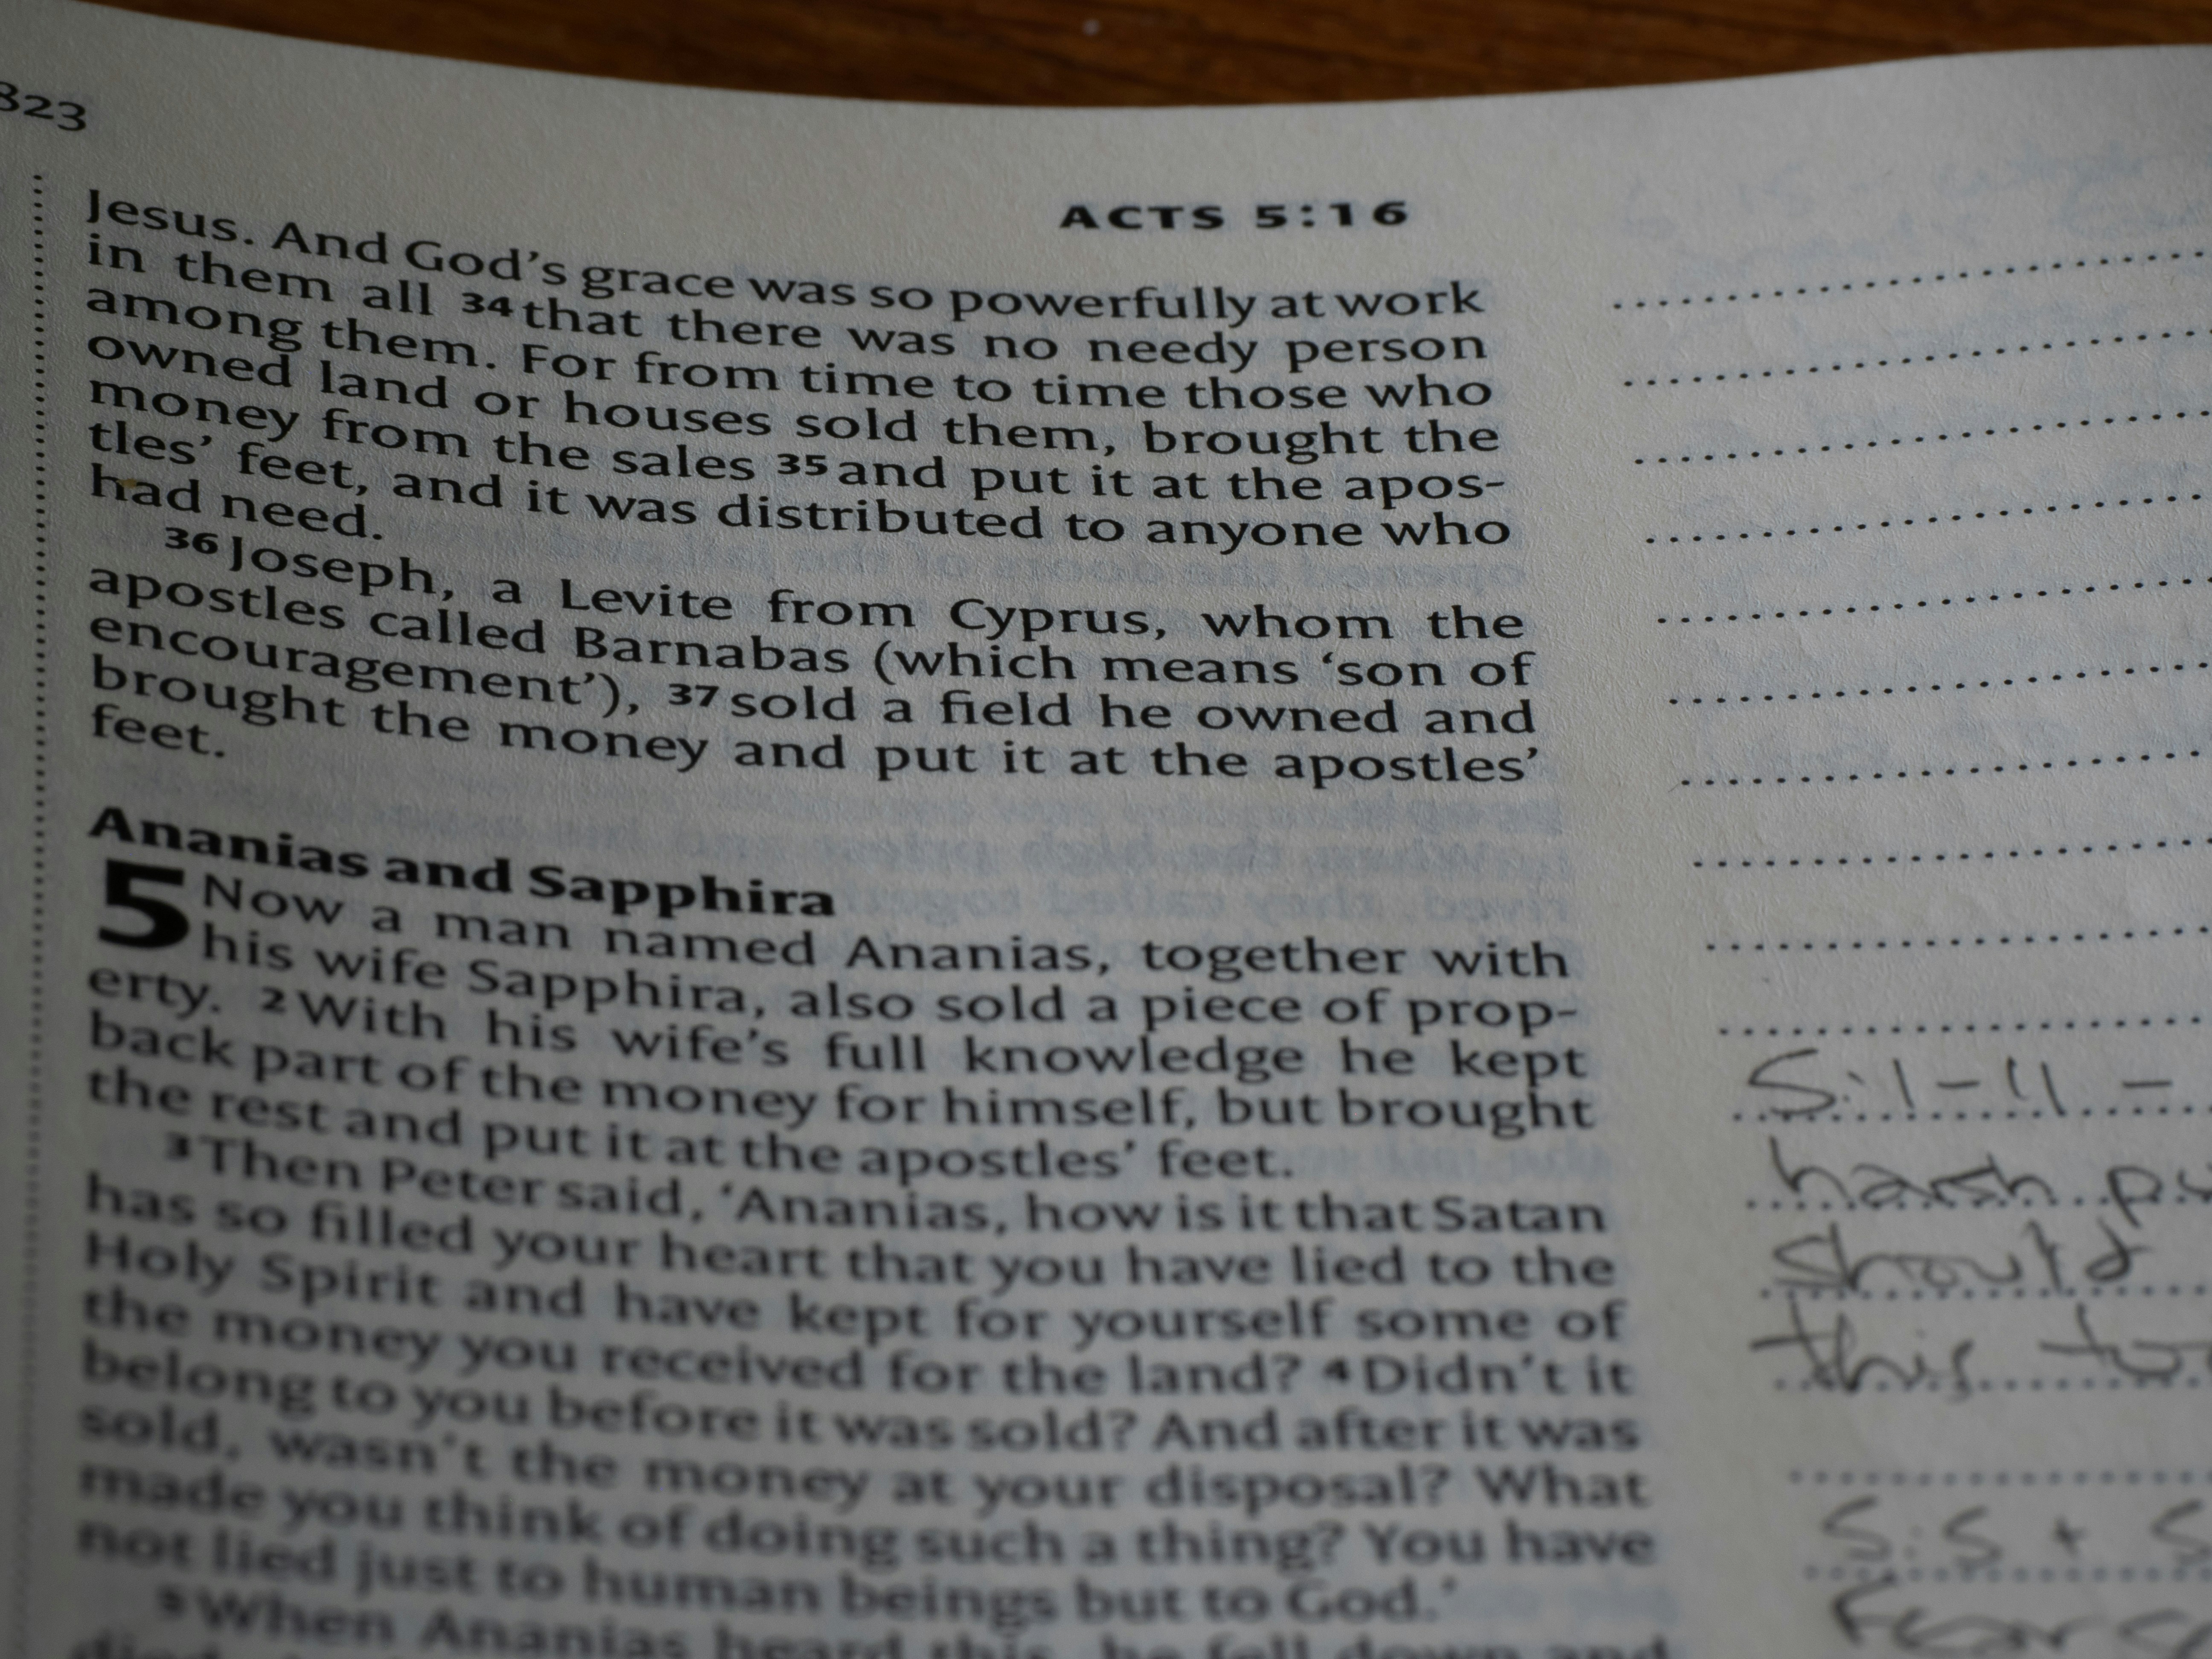 823
ACTS 5:16
Jesus. And God's grace was so powerfully at work
in them all 34 that there was no needy person
among them. For from time to time those who
owned land or houses sold them, brought the
money from the sales 35 and put it at the apos-
tles' feet, and it was distributed to anyone who
had need.
36 Joseph, a Levite from Cyprus, whom the
apostles called Barnabas (which means 'son of
encouragement'), 37 sold a field he owned and
brought the money and put it at the apostles'
feet.
Ananias and Sapphira
5 Now a man named Ananias, together with
his wife Sapphira, also sold a piece of prop-
erty. 2 With his wife's full knowledge he kept
back part of the money for himself, but brought
the rest and put it at the apostles' feet.
3 Then Peter said, 'Ananias, how is it that Satan
has so filled your heart that you have lied to the
Holy Spirit and have kept for yourself some of
the money you received for the land? 4 Didn't it
belong to you before it was sold? And after it was
sold, wasn't the money at your disposal? What
made you think of doing such a thing? You have
not lied just to human beings but to God.'
5 When Ananias heard this, he fell down and
died.
5:1-11 -
harsh
should
this
5:5 +